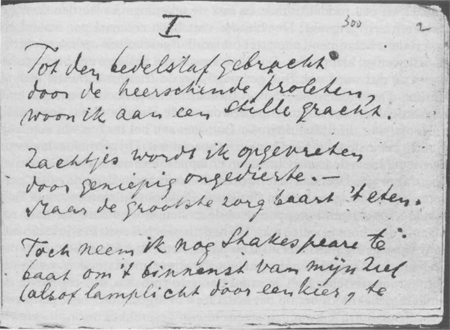 I
300 2
Tot den bedelstaf gebracht
door de heerschende proleten,
woon ik aan een stille gracht.
Zachtjes wordt ik opgevreten
door geniepig ongedierte. —
Maar de grootste zorg baart 't eten.
Toch neem ik nog Shakespeare te
baat om 't binnenst van mijn ziel
(alsof lamplicht door een kier, te